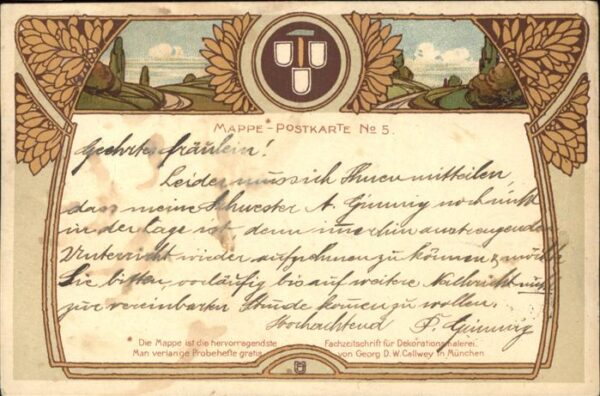 MAPPE-POSTKARTE No 5.
Geehrtes Fräulein!
Leider muss ich Ihnen mitteilen
dass meine Schwester A. noch nicht
in der Lage ist, denn immerhin anstrengenden
Unterricht wieder aufnehmen zu können & möchte
Sie bitten, vorläufig bis auf weitere Nachricht nicht
zur vereinbarten Stunde kommen zu wollen.
Hochachtend F.
Die Mappe ist die hervorragendste Fachzeitschrift für Dekorationsmalerei.
Man verlange Probehefte gratis von Georg D. W. Callwey in München